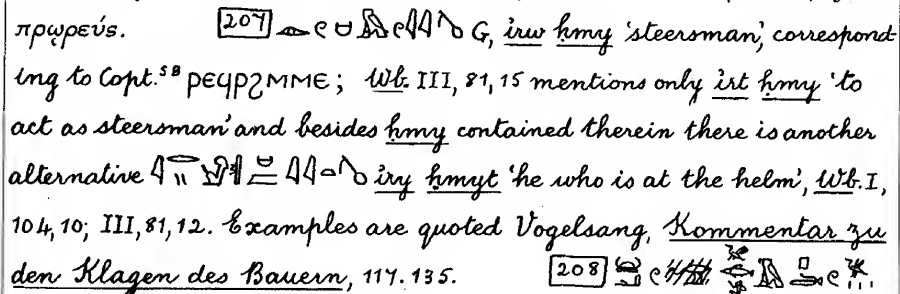 πρῳρεύς. 207 G, i̓rw ḥmy ‘steersman’, correspond-
ing to Copt.ˢᴮ ⲣⲉϥⲣϩⲙⲙⲉ; Wb. III, 81, 15 mentions only i̓rt ḥmy ‘to
act as steersman’ and besides ḥmy contained therein there is another
alternative i̓ry ḥmyt ‘he who is at the helm’, Wb. I,
104, 10; III, 81, 12. Examples are quoted Vogelsang, Kommentar zu
den Klagen des Bauern, 117. 135. 208